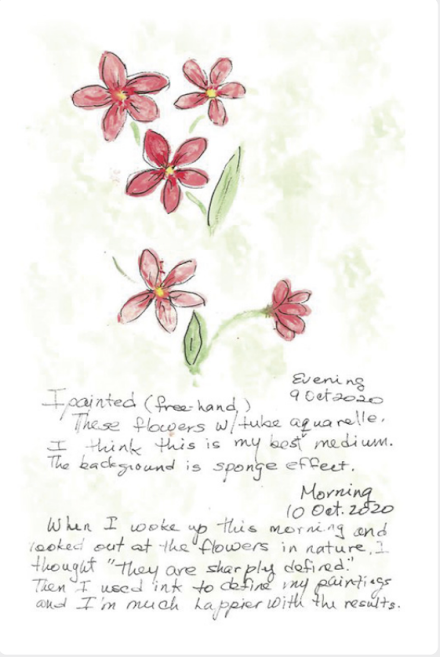 Evening
9 Oct 2020
I painted (free-hand,)
These flowers w/ tube aquarelle.
I think this is my best medium.
The background is sponge effect.
Morning
10 Oct. 2020
When I woke up this morning and
looked out at the flowers in nature, I
thought "they are sharply defined."
Then I used ink to define my paintings
and I'm much happier with the results.